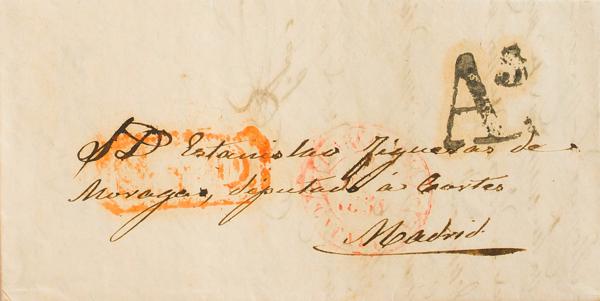 As
S D Estanislao Figueras de
Moragas, deputado á Cortes
Madrid